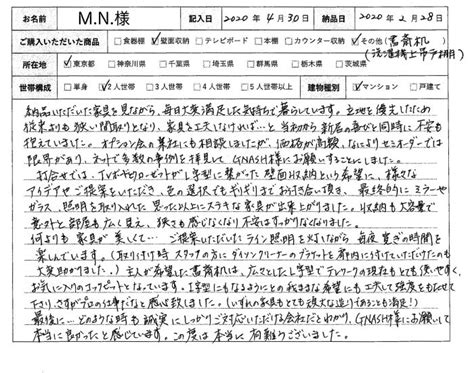 お名前 M.N.様 記入日 2020年4月30日 納品日 2020年2月28日
ご購入いただいた商品 □食器棚 ☑壁面収納 □テレビボード □本棚 □カウンター収納 ☑その他(書斎机
(洗濯機上吊戸棚)
所在地 ☑東京都 □神奈川県 □千葉県 □埼玉県 □群馬県 □栃木県 □茨城県
世帯構成 □単身 ☑2人世帯 □3人世帯 □4人世帯 □5人世帯以上 建物種別 ☑マンション □戸建て
納品いただいた家具を見ながら、毎日大変満足した気持ちで暮らしています。立地を優先したため
従来よりも狭い間取りとなり、家具を工夫しなければ…と当初から新居の喜びと同時に不安も
抱えていました。オプション会の業社にも相談しましたが、価格が高額、なによりセミオーダーでは
限界があり、ネットで多数の事例を拝見して GNASH様にお願いすることにしました。
打合せでは、TVボードやクローゼットがL字型に繋がった壁面収納という希望に、様々な
アイデアやご提案をいただき、色の選択でもギリギリまでお付き合い頂き、最終的にミラーや
ガラス、照明を取り入れた思った以上にステキな家具が出来上がりました。収納も大容量で
意外と部屋も広く見え、狭さも感じなくなり不安はすっかりなくなりました。
何よりも家具が美しくて… ご提案いただいたライン照明を灯しながら毎夜寛ぎの時間を
楽しんでいます。(取り付け時 スタッフの方にダイソンクリーナーのブラケットを扉内に付けていただけたのも
大変助かりました。)主人が希望した書斎机は、広々としたL字型でテレワークの現在もとても使いやすく、
お気に入りのコックピットとなっています。I字型にもなるようにとのわがままな希望にも工夫して強度ももたせて
下さり、さすがプロの仕事だなと感心致しました。(いずれの家具もとても頑丈な造りであることも満足!)
最後に…どのような時も誠実にしっかりご対応いただける会社だとわかり、GNASH様にお願いして
本当に良かったと感じています。この度は本当に有難うございました。